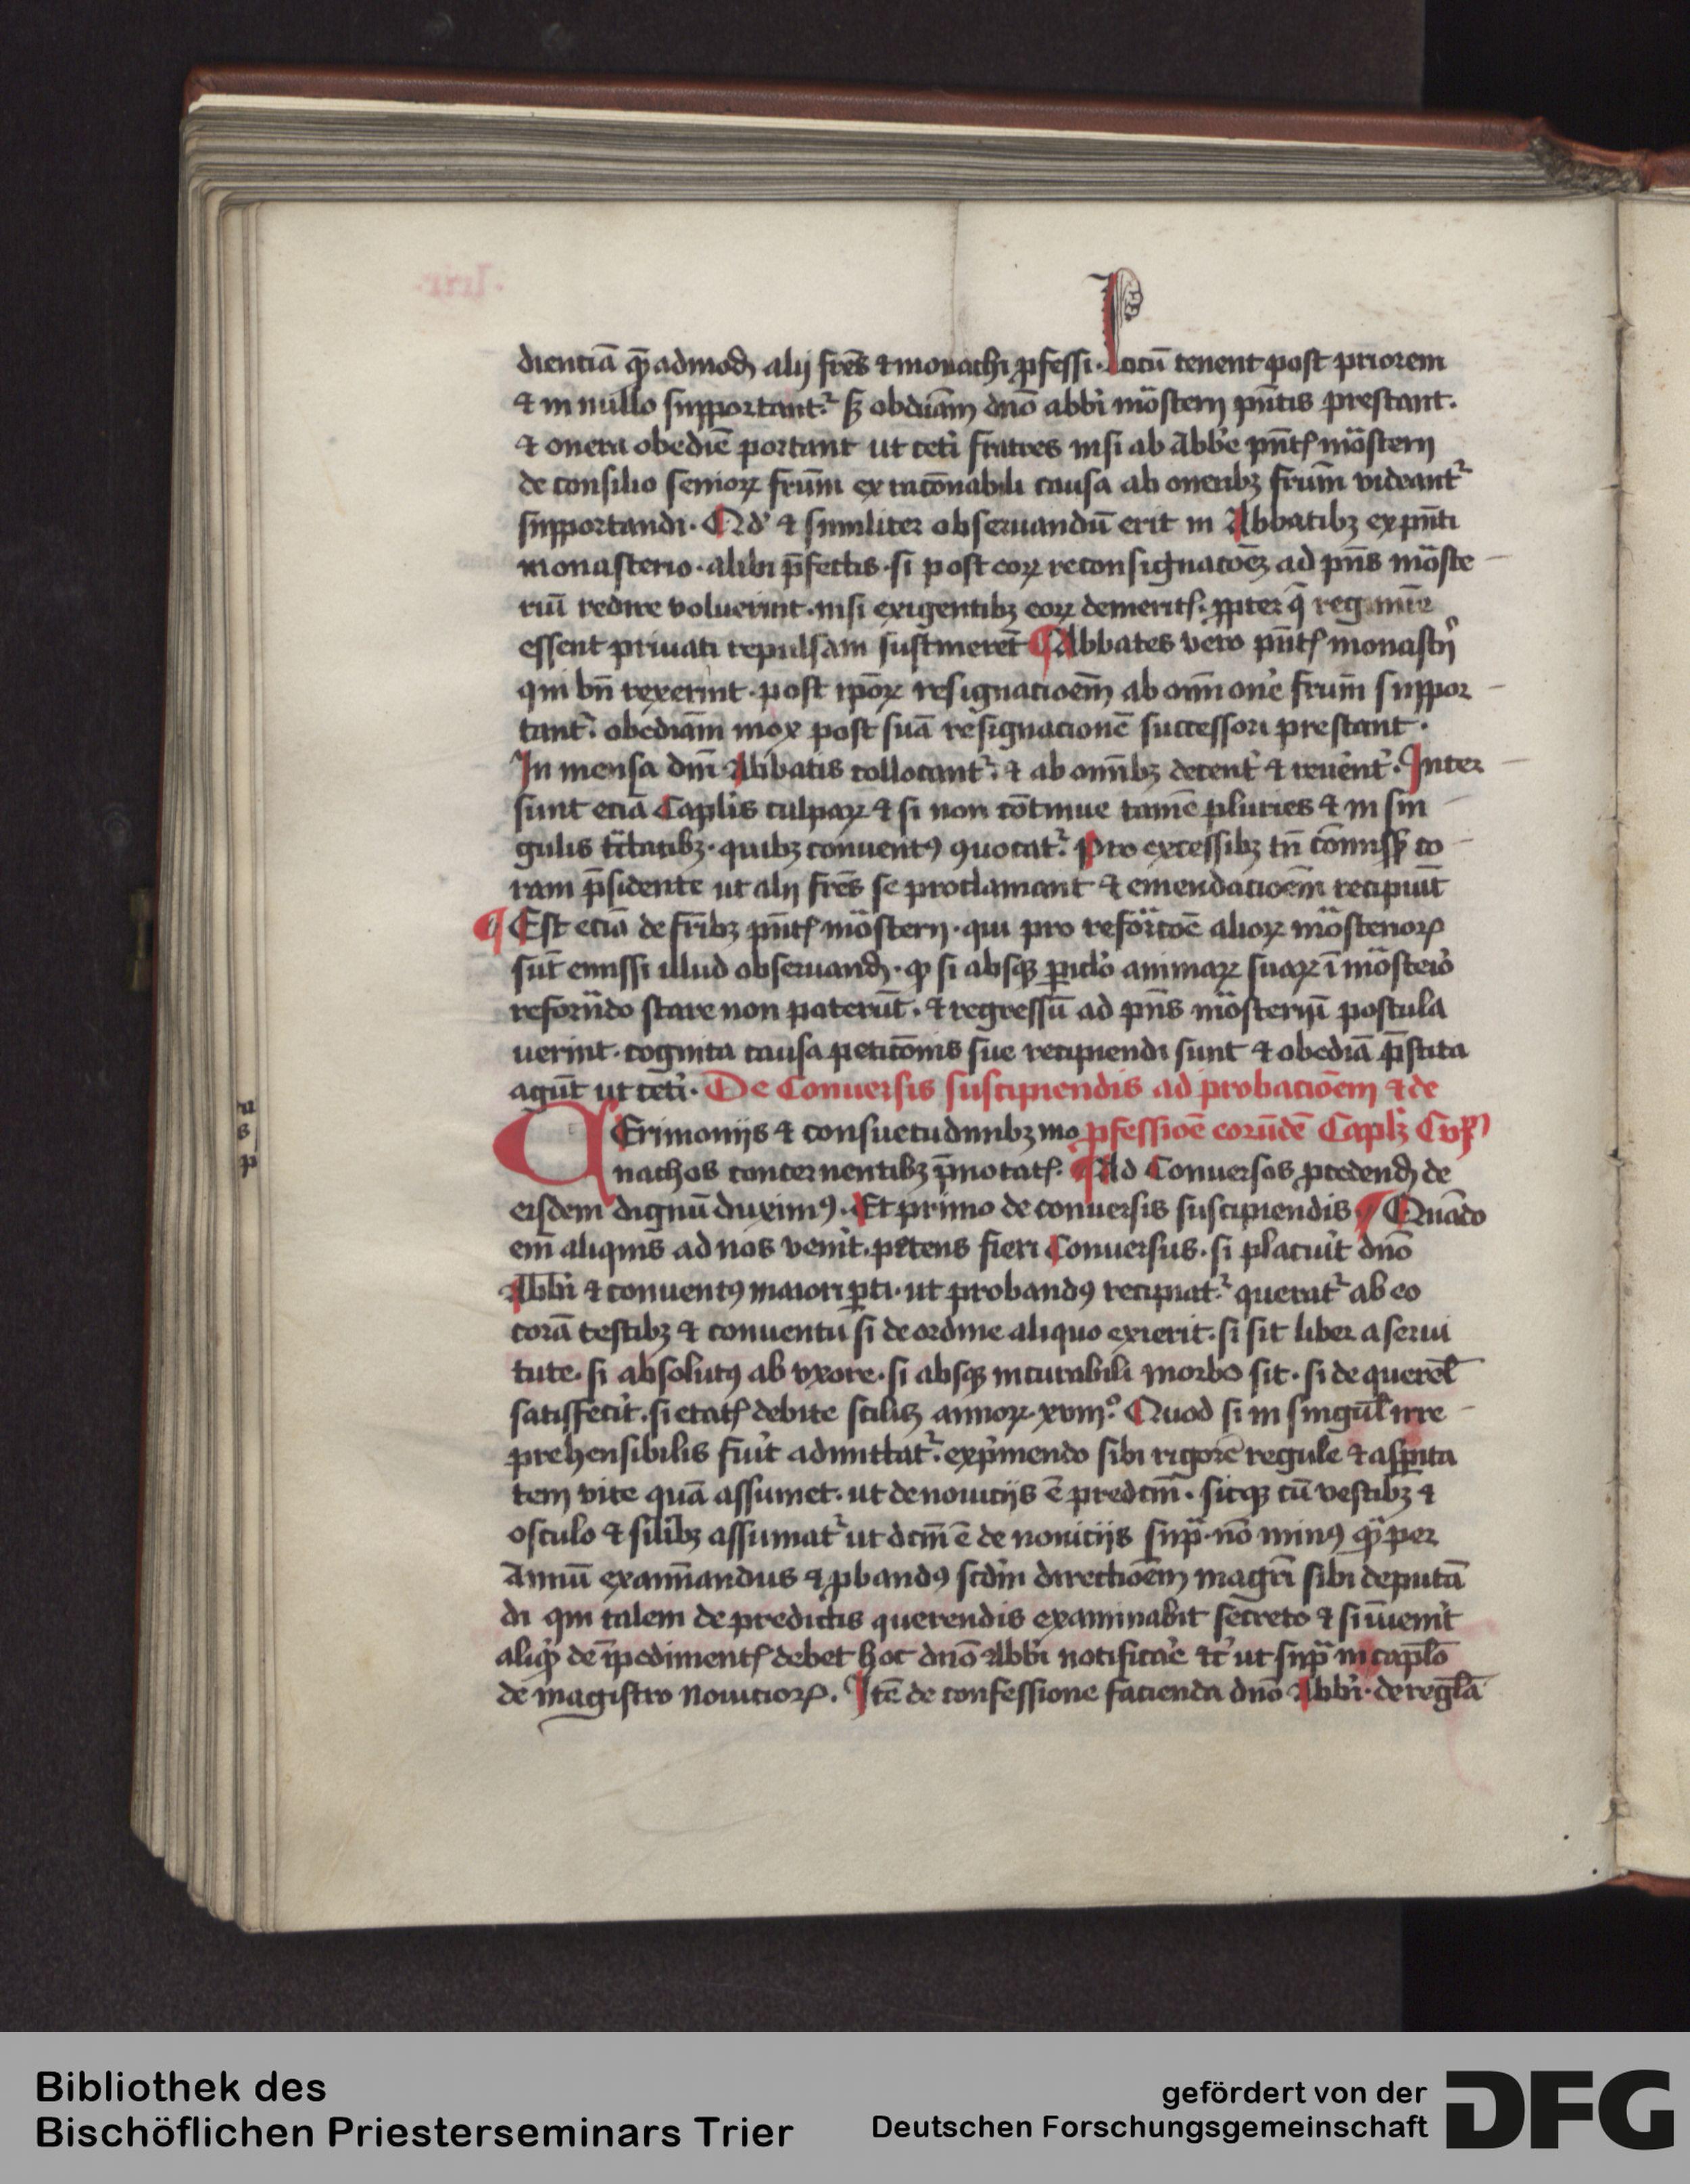 dienciā q̄admođ alij frēs ⁊ monachi ꝓfessi. Locū tenent post priorem
⁊ in nullo supportant᷑ sꝫ obediam̄ dn̄o abbi mōsterij pn̄tis prestant.
⁊ onera obedie portant ut cet̄i fratres nisi ab Abbe pn̄tꝭ mōsterij
de consilio senioꝝ frūm ex racōnabili causa ab oneribꝫ frūm videant᷑
supportandi. Qd' ⁊ similiter obseruandū erit in Abbatibꝫ ex pn̄ti
monasterio. alibi p̄fectis. si post eoꝝ reconsignacōeꝫ ad pn̄s mōste
riū redire voluerint. nisi exigentibꝫ eoꝝ demeritꝭ. ꝓpter q̄ regimīe
essent priuati repulsam sustineret̄ ¶ Abbates vero pn̄tꝭ monastij
qui bn̄ rexerint. post ip̄oꝝ resignacioēm ab omī one frūm suppor
tant᷑. obediam̄ mox post suā resignacionē successori prestant.
In mensa dn̄i Abbatis collocant᷑. ⁊ ab omībꝫ decent᷑ ⁊ reuēnt᷑. Inter
sunt eciā Capl'is culpaꝝ ⁊ si non cōtinue tamē pluries ⁊ in sin
gulis quibꝫ conuentꝰ ꝯuocat᷑. Pro excessibꝫ tn̄ cōmissꝭ co
ram p̄sidente ut alij frēs se proclamant ⁊ emendacioēm recipiūt
¶ Est eciā de fr̄ibꝫ pn̄tꝭ mōsterij. qui pro reforacōe alioꝝ mōsterioꝝ
sūt emissi illud obseruanđ. ꝙ si absqꝫ ꝑiclo animaꝝ suaꝝ ī mōsterio
reforādo stare non poterūt. ⁊ regressū ad pn̄s mōsteriū postula
uerint. cognita causa peticōnis sue recipiendi sunt ⁊ obediā p̄stita
agūt ut cet̄i. De Conuersis suscipiendis ad probacioēm ⁊ de
CErimonijs ⁊ consuetudinibꝫ mo ꝓfessioē eorūdē Caplꝫ
nachos concernentibꝫ p̄notatꝭ. ¶ Ad Conuersos ꝓcedenđ de
eisdem dignū duximꝰ. Et primo de conuersis suscipiendis ¶ Quādo
em̄ aliquis ad nos venīt. petens fieri Conuersus. si placuīt dn̄o
Abbi ⁊ conuentꝰ maiori ꝑti. ut probandꝰ recipiat᷑. querat᷑ ab eo
corā testibꝫ ⁊ conuentu si de ordine aliquo exierit. si sit liber a serui
tute. si absolutꝰ ab vxore. si absqꝫ incurabili morbo sit. si de querel̄
satisfecīt. si etatꝭ debite scilicꝫ annoꝝ. xviij°. Quod si in singul̄ irre
prehensibilis fuīt admittat᷑. exp̄mendo sibi rigorē regule ⁊ asꝑita
tem vite quā assumet. ut de nouicijs ē predcm̄. sicqꝫ cū vestibꝫ ⁊
osculo ⁊ silibꝫ assumat᷑ ut dcm̄ ē de nouicijs sup̄. nō minꝰ q̄ per
Annū examīandus ⁊ ꝓbandꝰ scdm̄ directioēm magr̄i sibi deputā
di qui talem de predictis querendis examinabit secreto ⁊ si īuenīt
aliqđ de īpedimentꝭ debet hoc dn̄o Abbi notificar̄e ⁊c̄ ut sup̄ in caplo
de magistro nouicioꝝ. Itē de confessione facienda dn̄o Abbi. de regl̄a
Bibliothek des
Bischöflichen Priesterseminars Trier
gefördert von der
Deutschen Forschungsgemeinschaft
DFG